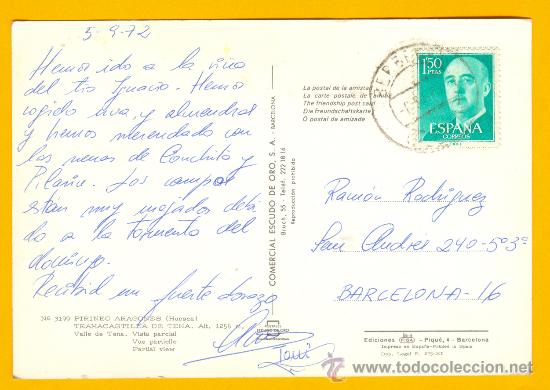 5-9-72
Hemos ido a la viña
del tio Ignacio. Hemos
cogido uva y almendras
y hemos merendado con
las nenas de Conchita y
Pilarín. Los campos
están muy mojados debi
do a la tormenta del
domingo.
Recibid un fuerte abrazo
Toni
Nº 3199 PIRINEO ARAGONES (Huesca)
TRAMACASTILLA DE TENA. Alt. 1256 m.
Valle de Tena. Vista parcial
Vue partielle
Partial view
COMERCIAL ESCUDO DE ORO, S. A. - BARCELONA
Bruch, 55 - Teléf. 222 18 14
Reproducción prohibida
La postal de la amistad
La carte postale de
The friendship post card
Die Freundschaftskarte
O postal de amizade
1'50
PTAS
ESPAÑA
CORREOS
Ramón Rodríguez
San Andrés 240-5º3ª
BARCELONA-16
Ediciones FISA - Piqué, 4 - Barcelona
Impreso en España-Printed in Spain
todocoleccion.net